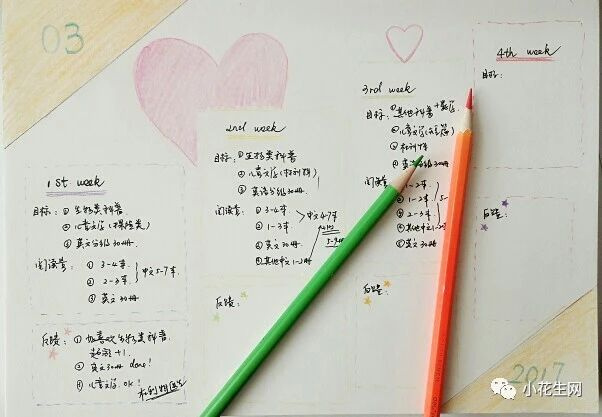 03
1st week
目标: ① 生物类科普
② 儿童文学(探险类)
③ 英文分级30册
阅读量: ① 3-4本
② 2-3本
中文5-7本
③ 英文30册
反馈: ① 加喜欢生物类科普
超额+1.
② 英文30册 done!
③ 儿童文学 OK!
2nd week
目标: ① 生物类科普
② 儿童文学(杜利特)
③ 英语分级30册
阅读量: ① 3-4本
② 1-3本
中文4-7本
③ 英文30册
④ 其他中文1-2册
反馈:
3rd week
目标: ① 其他科普
② 儿童文学
③ 杜利特
④ 英文分级30册
阅读量: ① 1-2本
② 1-2本
③ 2-3本
④ 其他中文
⑤ 英文30册
反馈:
4th week
目标:
反馈:
2017
小花生网